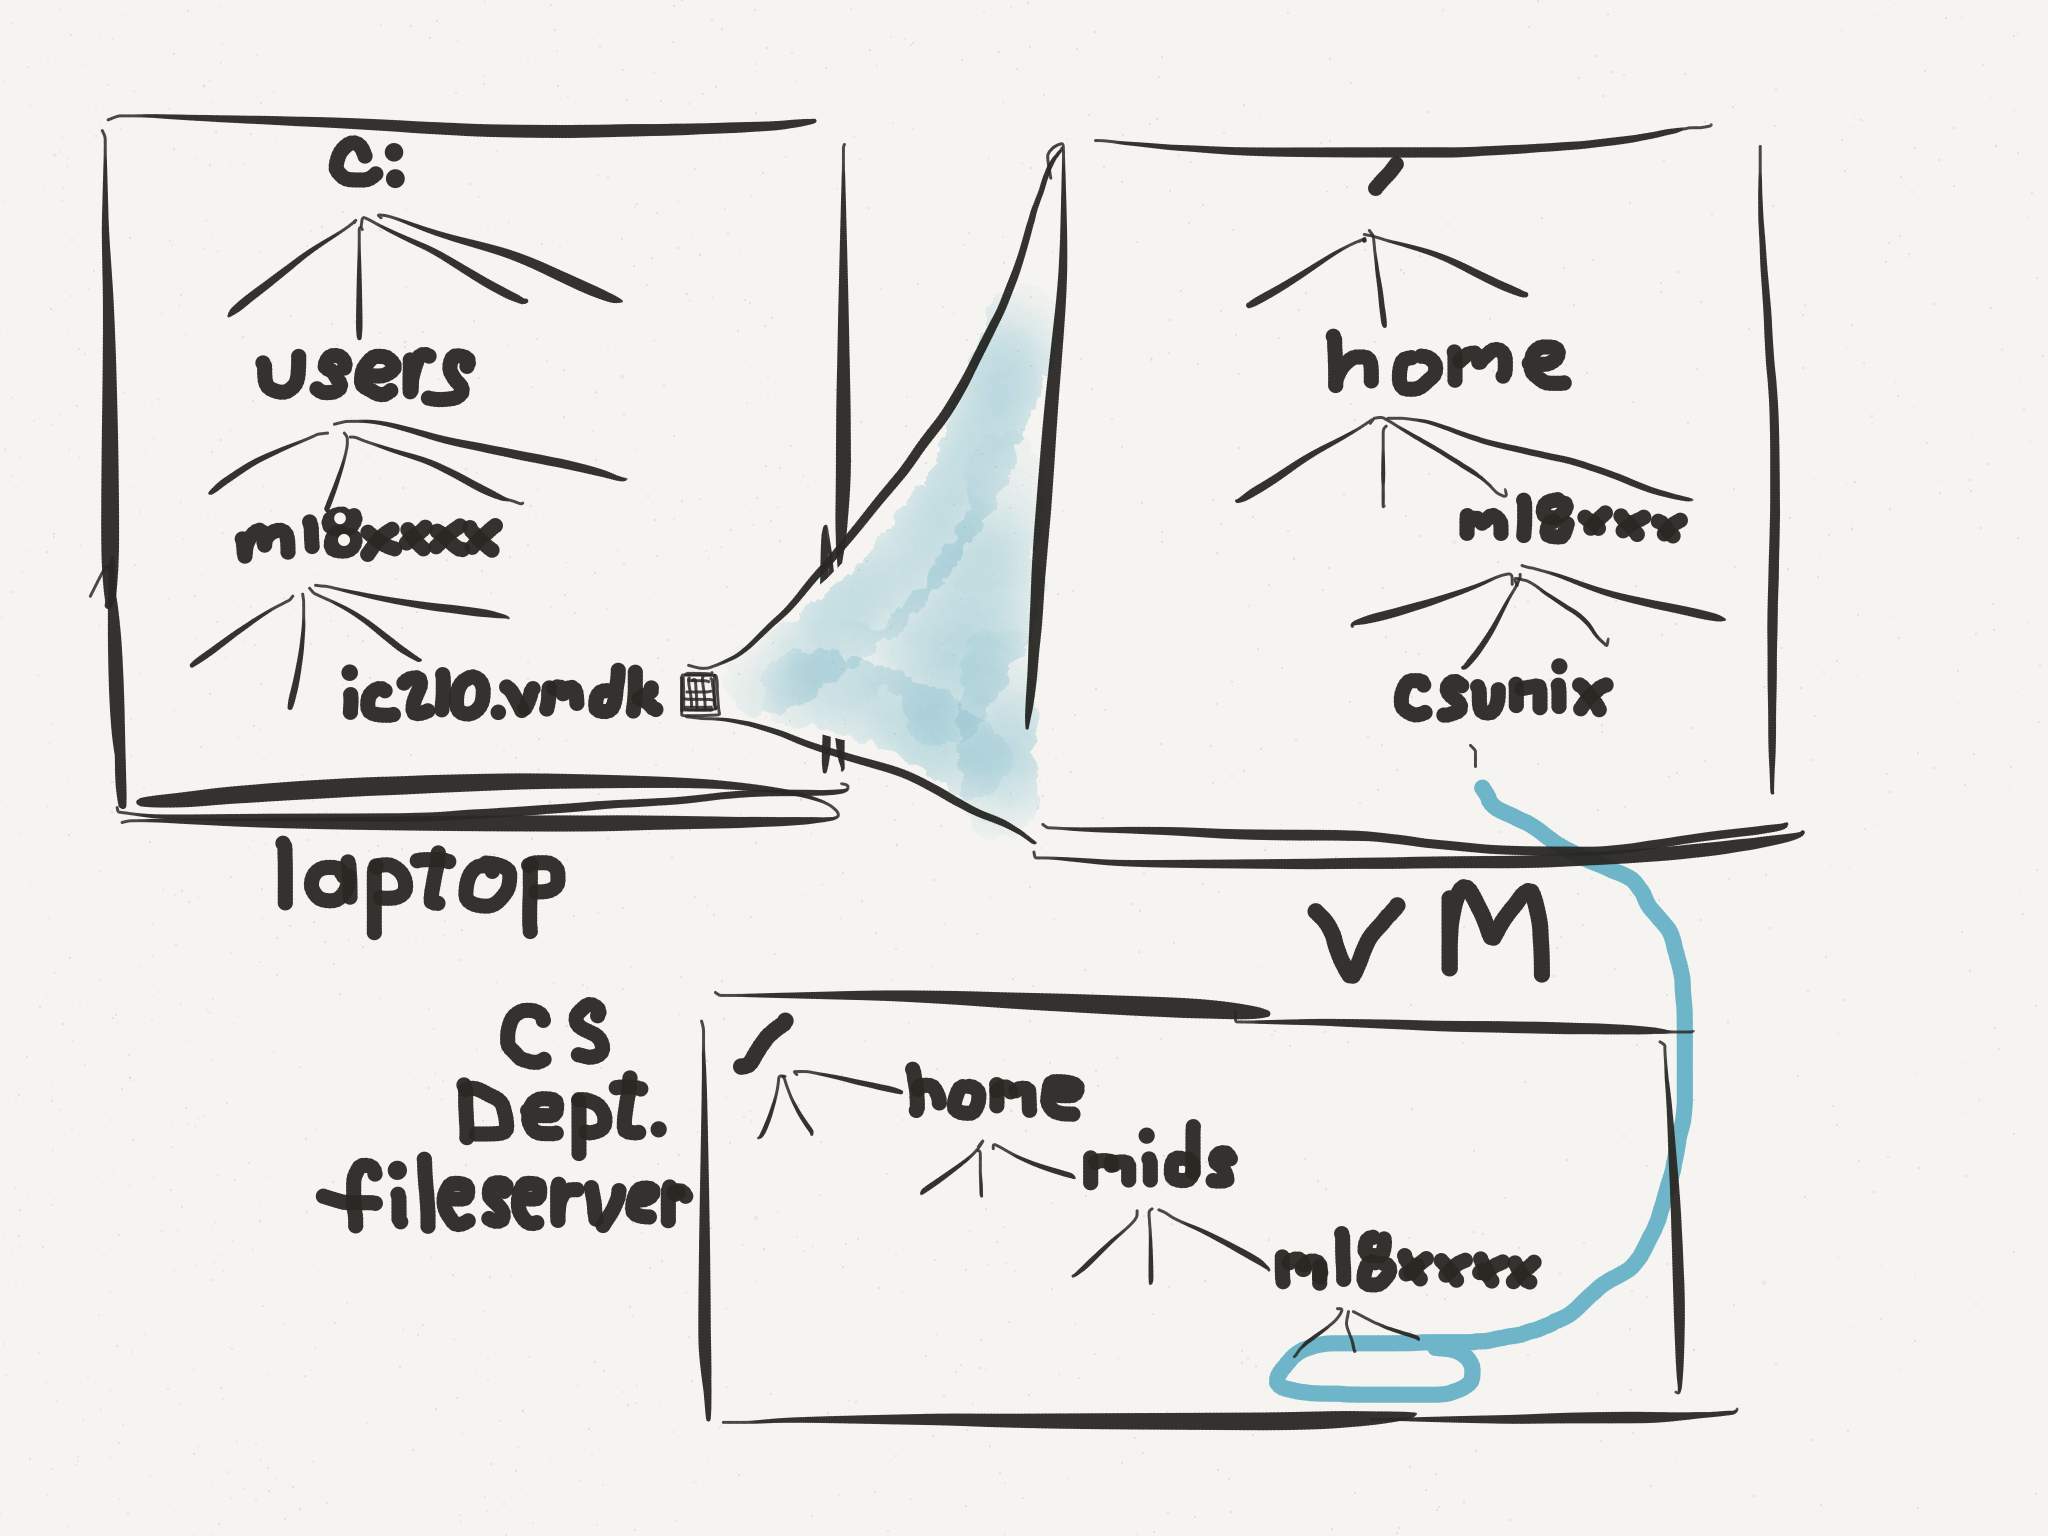 c:
users
m18xxxx
ic210.vmdk
laptop
/
home
m18xxx
csunix
VM
CS
Dept.
fileserver
/
home
mids
m18xxxx